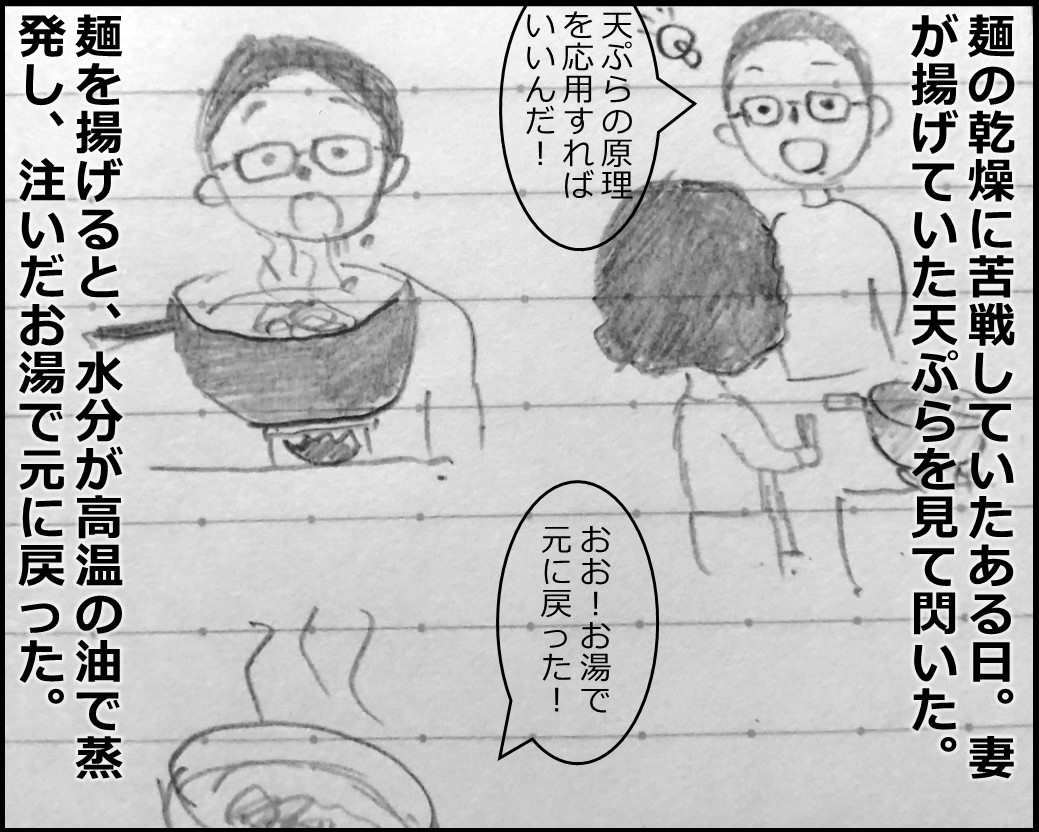 麺の乾燥に苦戦していたある日。妻
が揚げていた天ぷらを見て閃いた。
天ぷらの原理
を応用すれば
いいんだ！
おお！お湯で
元に戻った！
麺を揚げると、水分が高温の油で蒸
発し、注いだお湯で元に戻った。